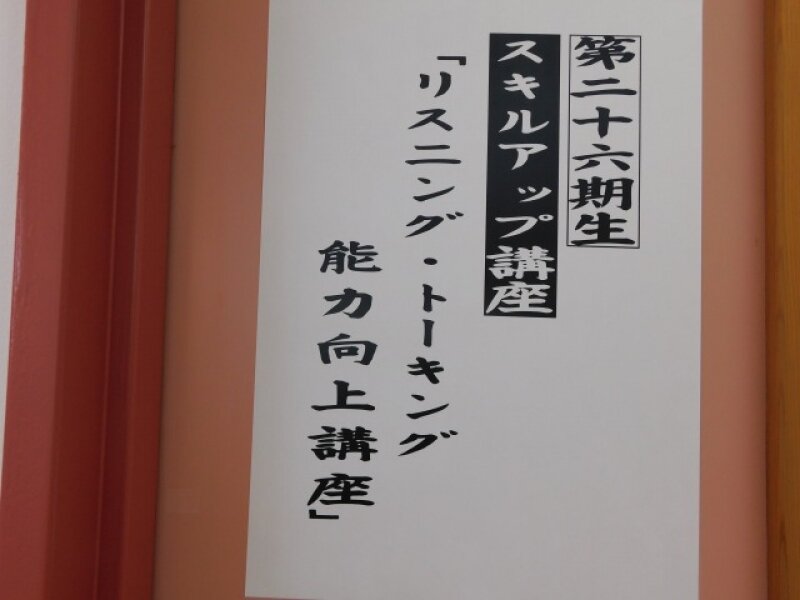 第二十六期生
スキルアップ講座
「リスニング・トーキング
能力向上講座」